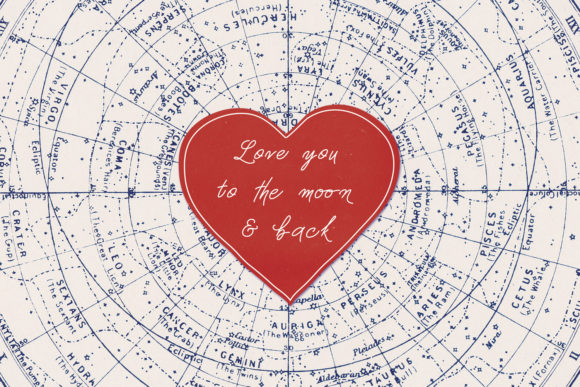 Love you
to the moon
& back
HERCULES
(Hercules)
LYRA
CYGNUS
VULPES
AQUARIUS
(The Water Carrier)
PEGASUS
(Pegasus)
VIRGO
(The Virgin)
Arcturus
BOOTES
CORONA
SERPENS
Equator
Ecliptic
COMA
(Berenices Hair)
ANDROMEDA
(Andromeda)
PISCES
(The Fishes)
Ecliptic
Equator
CRATER
(The Cup)
LEO
(The Great Lion)
LYNX
Capella
AURIGA
(The Waggoner)
PERSEUS
(Perseus)
ARIES
(The Ram)
CETUS
(The Whale)
SEXTANS
HYDRA
CANCER
(The Crab)
Ecliptic
Castor
Pollux
GEMINI
(The Twins)
Pleiades
Aldebaran
TAURUS